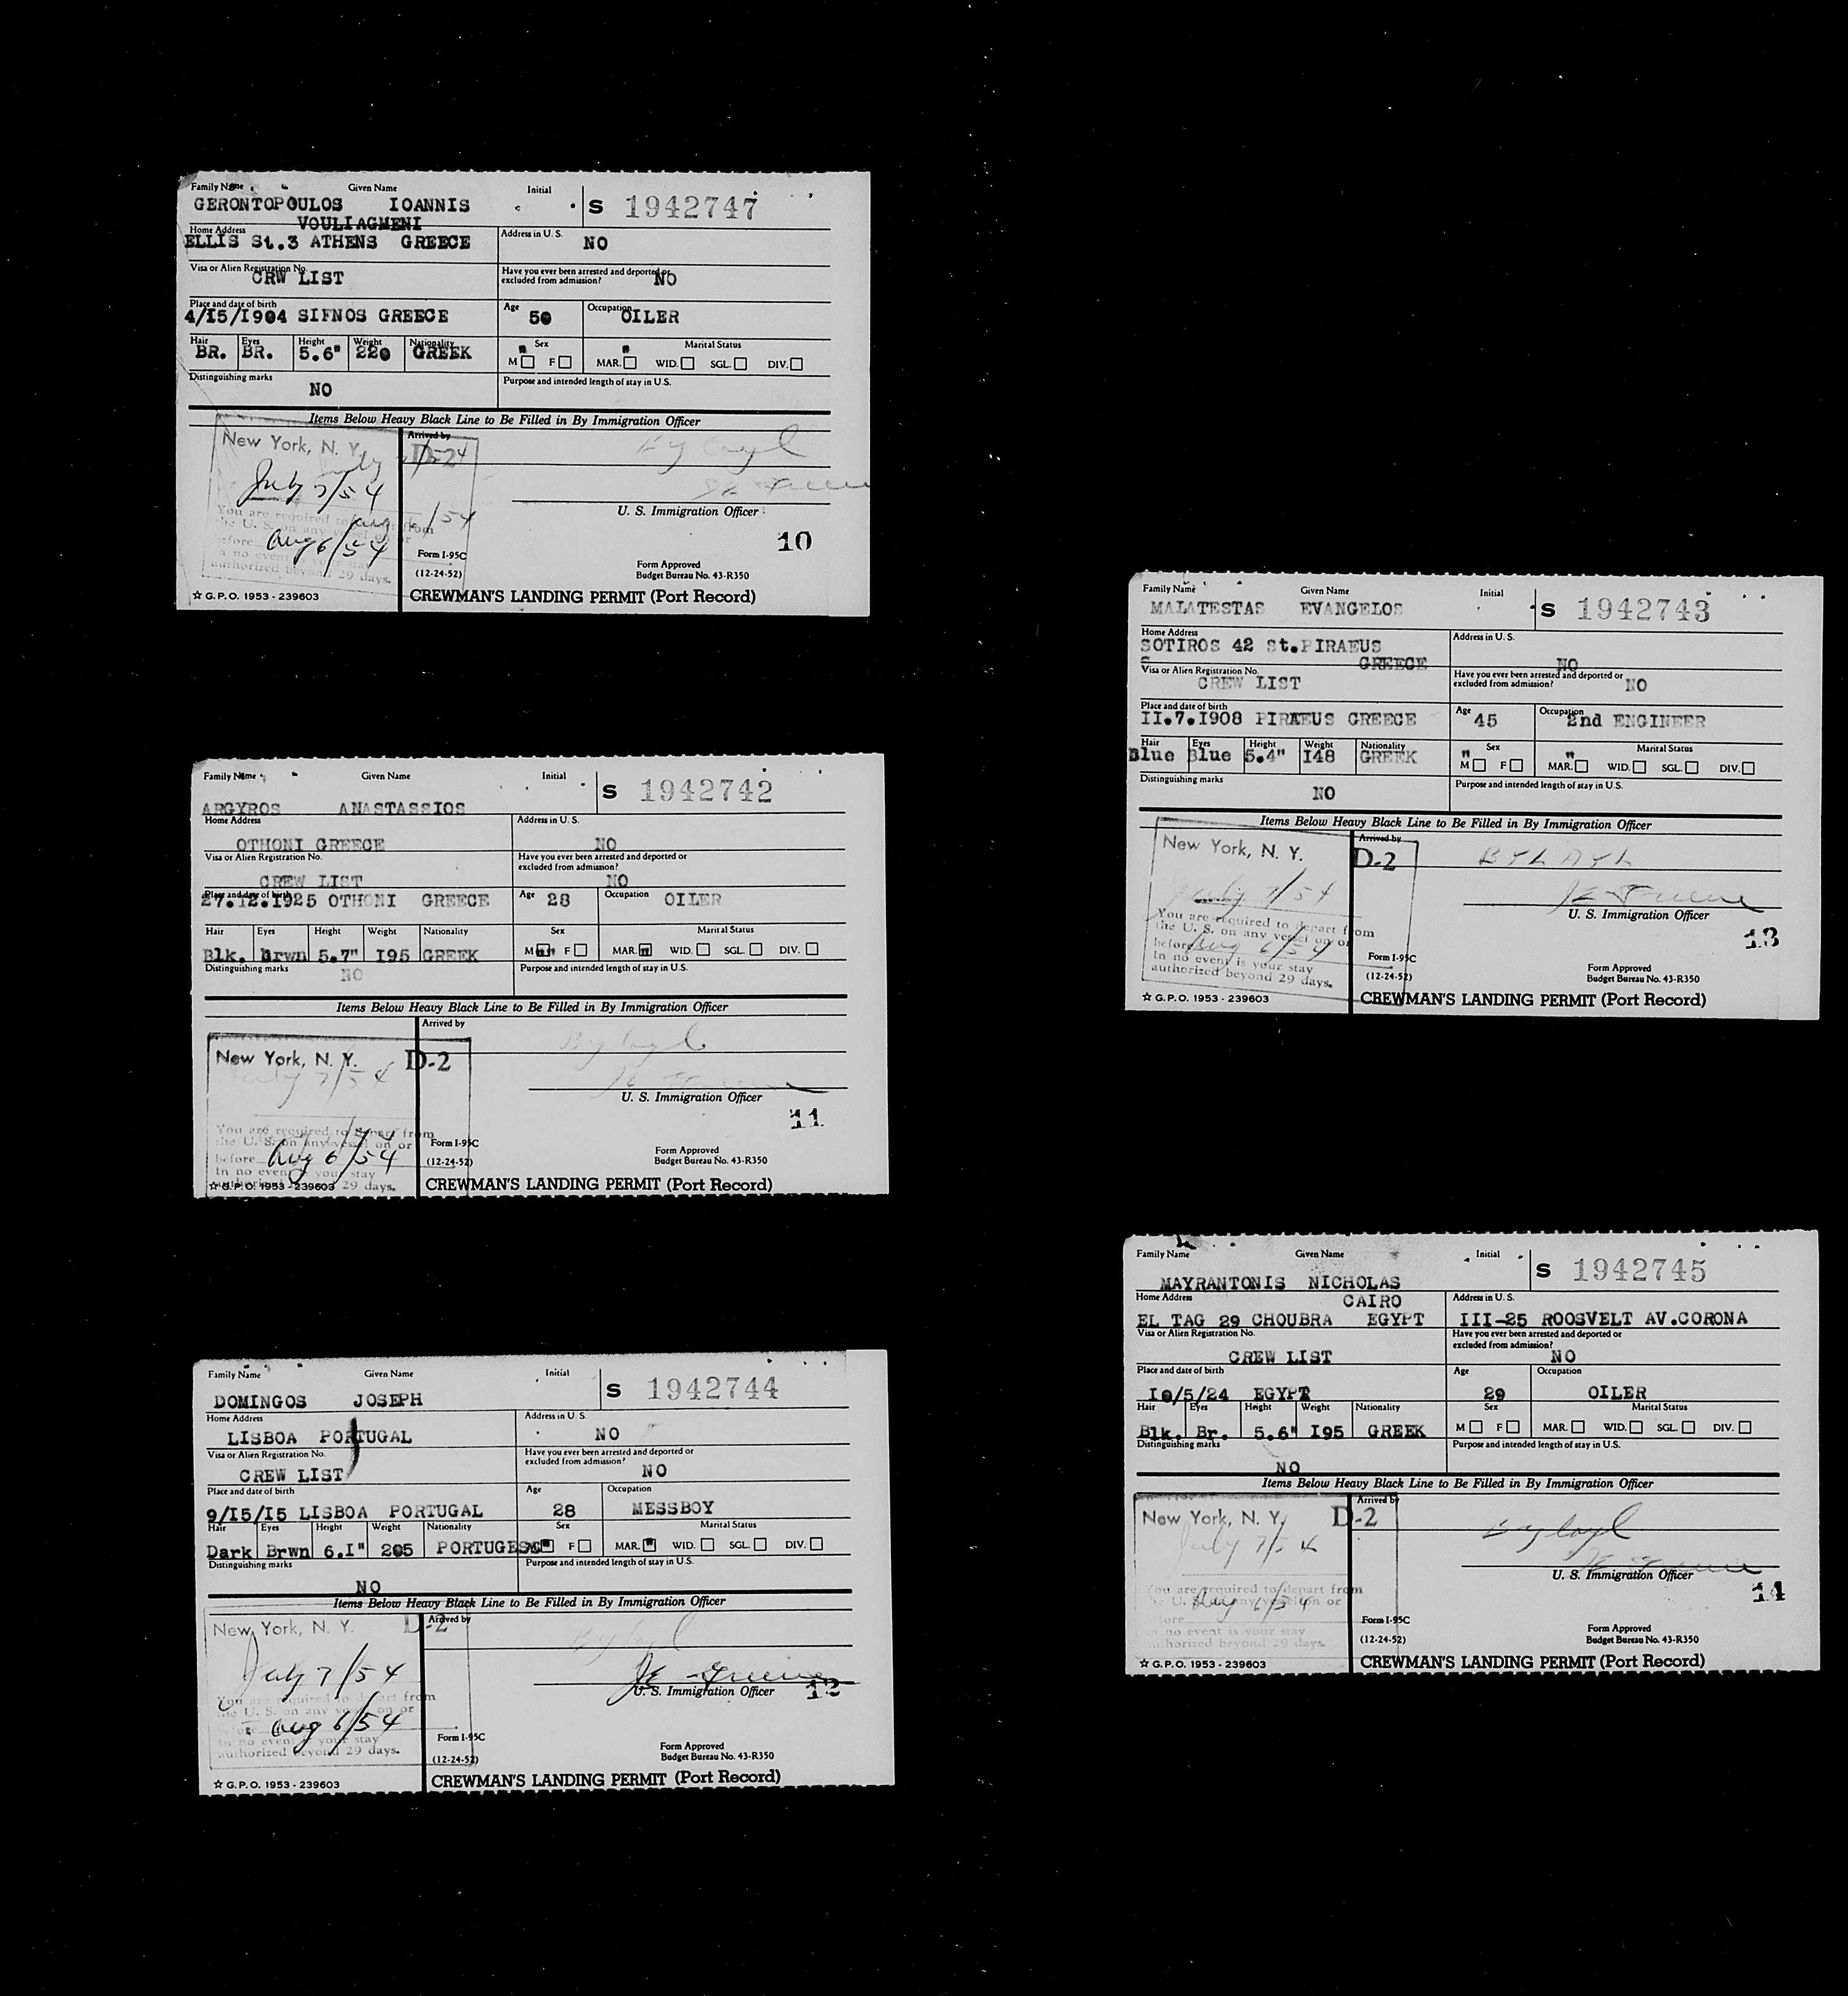 Family Name Given Name Initial
GERONTOPOULOS IOANNIS S 1942747
VOULIAGMENI
Home Address Address in U. S.
ELLIS St.3 ATHENS GREECE NO
Visa or Alien Registration No. Have you ever been arrested and deported or
CRW LIST excluded from admission? NO
Place and date of birth Age Occupation
4/I5/I904 SIFNOS GREECE 50 OILER
Hair Eyes Height Weight Nationality Sex Marital Status
BR. BR. 5.6" 220 GREEK M F MAR. WID. SGL. DIV.
Distinguishing marks Purpose and intended length of stay in U.S.
NO
Items Below Heavy Black Line to Be Filled in By Immigration Officer
New York, N. Y. Arrived by
D-2
July 7/54
You are required to depart from
the U. S. on any vessel on or
before Aug 6/54
In no event is your stay
authorized beyond 29 days.
U. S. Immigration Officer
10
Form I-95C
(12-24-52)
Form Approved
Budget Bureau No. 43-R350
☆ G. P. O. 1953 - 239603
CREWMAN'S LANDING PERMIT (Port Record)
Family Name Given Name Initial
ARGYROS ANASTASSIOS S 1942742
Home Address Address in U. S.
OTHONI GREECE NO
Visa or Alien Registration No. Have you ever been arrested and deported or
excluded from admission?
CREW LIST NO
Place and date of birth Age Occupation
27.12.1925 OTHONI GREECE 28 OILER
Hair Eyes Height Weight Nationality Sex Marital Status
Blk. Brwn 5.7" I95 GREEK M F MAR. WID. SGL. DIV.
Distinguishing marks Purpose and intended length of stay in U.S.
NO
Items Below Heavy Black Line to Be Filled in By Immigration Officer
Arrived by
New York, N. Y. D-2
July 7/54
U. S. Immigration Officer
11
You are required to depart from
the U. S. on any vessel on or
before Aug 6/54
In no event is your stay
authorized beyond 29 days.
Form I-95C
(12-24-52)
Form Approved
Budget Bureau No. 43-R350
☆ G. P. O. 1953 - 239603
CREWMAN'S LANDING PERMIT (Port Record)
Family Name Given Name Initial
DOMINGOS JOSEPH S 1942744
Home Address Address in U. S.
LISBOA PORTUGAL NO
Visa or Alien Registration No. Have you ever been arrested and deported or
excluded from admission?
CREW LIST NO
Place and date of birth Age Occupation
9/I5/I5 LISBOA PORTUGAL 28 MESSBOY
Hair Eyes Height Weight Nationality Sex Marital Status
Dark Brwn 6.I" 205 PORTUGESE M F MAR. WID. SGL. DIV.
Distinguishing marks Purpose and intended length of stay in U.S.
NO
Items Below Heavy Black Line to Be Filled in By Immigration Officer
New York, N. Y. D-2 Arrived by
July 7/54
U. S. Immigration Officer 12
You are required to depart from
the U. S. on any vessel on or
before Aug 6/54
In no event is your stay
authorized beyond 29 days.
Form I-95C
(12-24-52)
Form Approved
Budget Bureau No. 43-R350
☆ G. P. O. 1953 - 239603
CREWMAN'S LANDING PERMIT (Port Record)
Family Name Given Name Initial
MALATESTAS EVANGELOS S 1942743
Home Address Address in U. S.
SOTIROS 42 St.PIRAEUS
GREECE NO
Visa or Alien Registration No. Have you ever been arrested and deported or
CREW LIST excluded from admission? NO
Place and date of birth Age Occupation
II.7.I908 PIRAEUS GREECE 45 2nd ENGINEER
Hair Eyes Height Weight Nationality Sex Marital Status
Blue Blue 5.4" I48 GREEK M F MAR. WID. SGL. DIV.
Distinguishing marks Purpose and intended length of stay in U.S.
NO
Items Below Heavy Black Line to Be Filled in By Immigration Officer
New York, N. Y. Arrived by
D-2
July 7/54
U. S. Immigration Officer
13
You are required to depart from
the U. S. on any vessel on or
before Aug 6/54
In no event is your stay
authorized beyond 29 days.
Form I-95C
(12-24-52)
Form Approved
Budget Bureau No. 43-R350
☆ G. P. O. 1953 - 239603
CREWMAN'S LANDING PERMIT (Port Record)
Family Name Given Name Initial
MAYRANTONIS NICHOLAS S 1942745
Home Address CAIRO Address in U. S.
EL TAG 29 CHOUBRA EGYPT III-25 ROOSVELT AV.CORONA
Visa or Alien Registration No. Have you ever been arrested and deported or
excluded from admission?
CREW LIST NO
Place and date of birth Age Occupation
I0/5/24 EGYPT 29 OILER
Hair Eyes Height Weight Nationality Sex Marital Status
Blk. Br. 5.6" I95 GREEK M F MAR. WID. SGL. DIV.
Distinguishing marks Purpose and intended length of stay in U.S.
NO
Items Below Heavy Black Line to Be Filled in By Immigration Officer
New York, N. Y. D-2 Arrived by
July 7/54
U. S. Immigration Officer
14
You are required to depart from
the U. S. on any vessel on or
before Aug 6/54
In no event is your stay
authorized beyond 29 days.
Form I-95C
(12-24-52)
Form Approved
Budget Bureau No. 43-R350
☆ G. P. O. 1953 - 239603
CREWMAN'S LANDING PERMIT (Port Record)